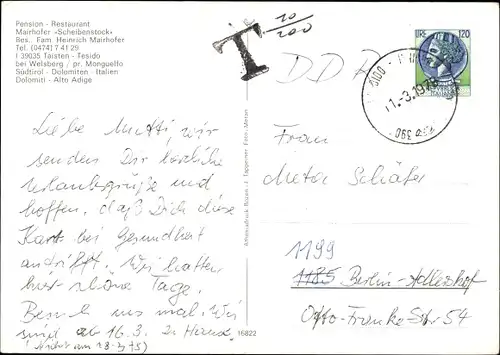 Pension - Restaurant
Mairhofer »Scheibenstock«
Bes. Fam. Heinrich Mairhofer
Tel. (0474) 7 41 29
I 39035 Taisten - Tesido
bei Welsberg / pr. Monguelfo
Südtirol - Dolomiten - Italien
Dolomiti - Alto Adige
T 10/200
LIRE 120
-1.-3.1975
390
DDR
Liebe Mutti, wir
senden Dir herzliche
Urlaubsgrüße und
hoffen, daß Dich diese
Karte bei Gesundheit
antrifft. Wir hatten
hier schöne Tage.
Besuch uns mal. Wir
sind ab 16.3. zu Hause
(Nicht am 23.3.75)
Frau
Meta Schäfer
1199
1185 Berlin-Adlershof
Otto-Franke Str 54
16822